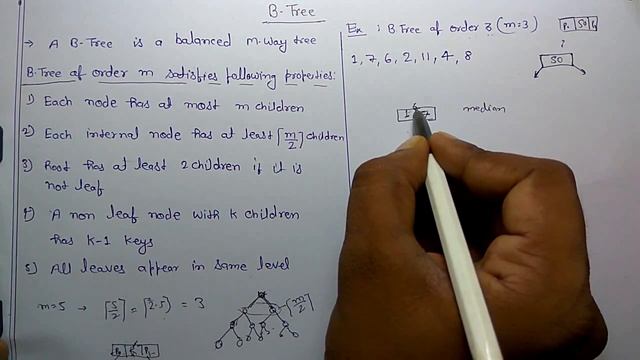 B-Tree
→ A B-Tree is a balanced m-way tree
B-Tree of order m satisfies following properties:
1) Each node has at most m children
2) Each internal node has at least ⌈m/2⌉ children
3) Root has at least 2 children if it is
not leaf
4) A non leaf node with k children
has k-1 keys
5) All leaves appear in same level
m=5 → ⌈5/2⌉ = ⌈2.5⌉ = 3
⌈m/2⌉
Ex : B Tree of order 3 (m=3)
1, 7, 6, 2, 11, 4, 8
50
50
6
1 7
median